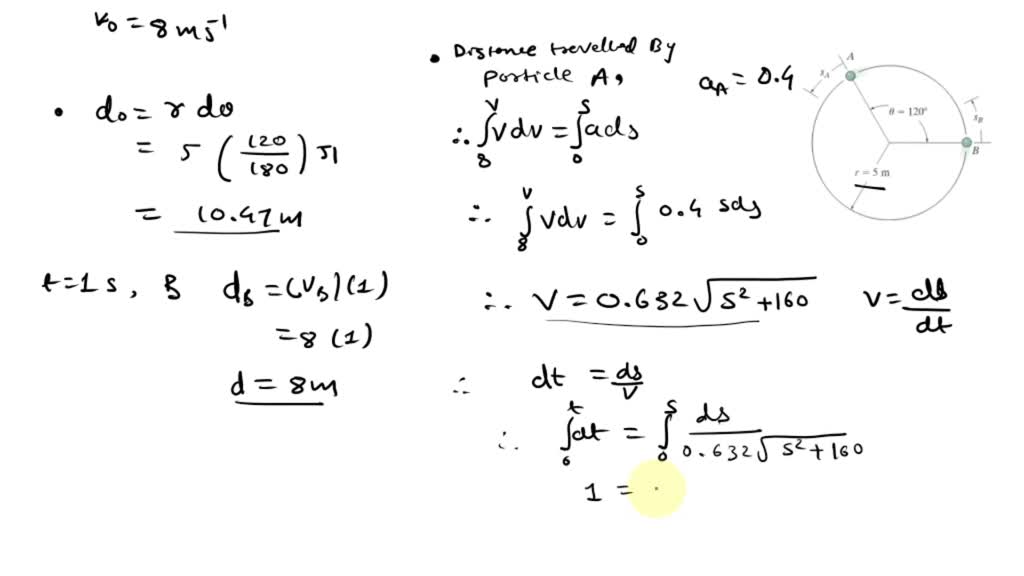 v₀ = 8 ms⁻¹
• d₀ = r dθ
= 5 (120/180) π
= 10.47 m
t=1 s, B d_B = (V_B)(1)
= 8 (1)
d = 8m
• Distance travelled By
particle A,
∴ ∫₈^v v dv = ∫₀^s a ds
∴ ∫₈^v v dv = ∫₀^s 0.4 s ds
∴ V = 0.632 √(s² + 160) v = ds/dt
∴ dt = ds/v
∴ ∫₀^t dt = ∫₀^s ds / 0.632 √(s² + 160)
1 =
a_A = 0.4
A
s_A
θ = 120°
s_B
B
r = 5 m